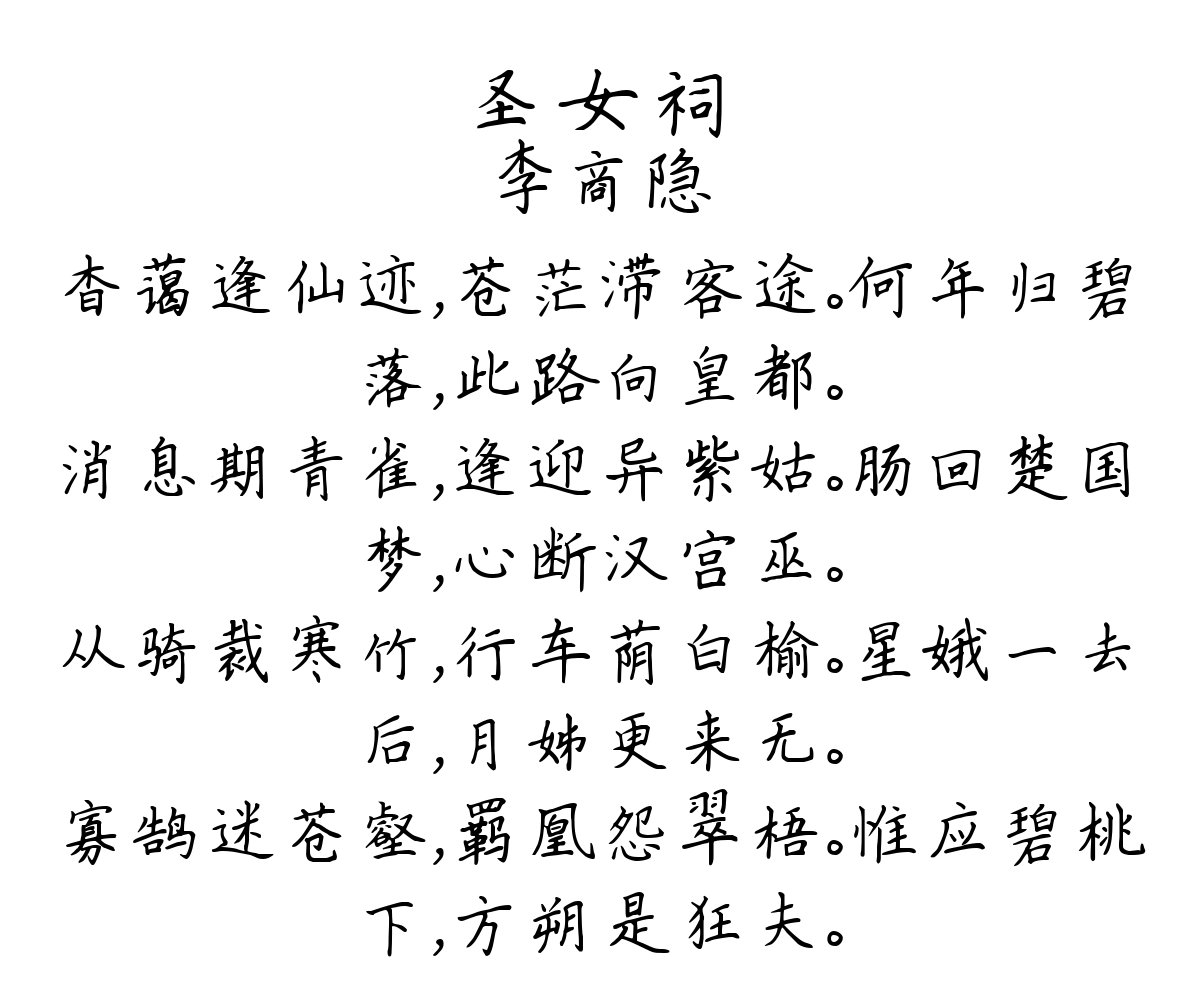 圣女祠
李商隐
杳蔼逢仙迹,苍茫滞客途。何年归碧
落,此路向皇都。
消息期青雀,逢迎异紫姑。肠回楚国
梦,心断汉宫巫。
从骑裁寒竹,行车荫白榆。星娥一去
后,月姊更来无。
寡鹄迷苍壑,羁凰怨翠梧。惟应碧桃
下,方朔是狂夫。